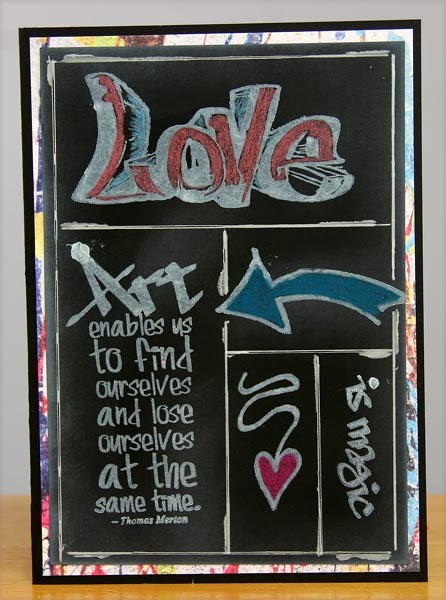 Love
Art
enables us
to find
ourselves
and lose
ourselves
at the
same time.
– Thomas Merton
is magic